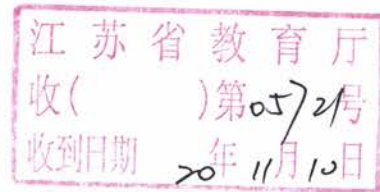 江苏省教育厅
收( )第05721号
收到日期 20年11月10日